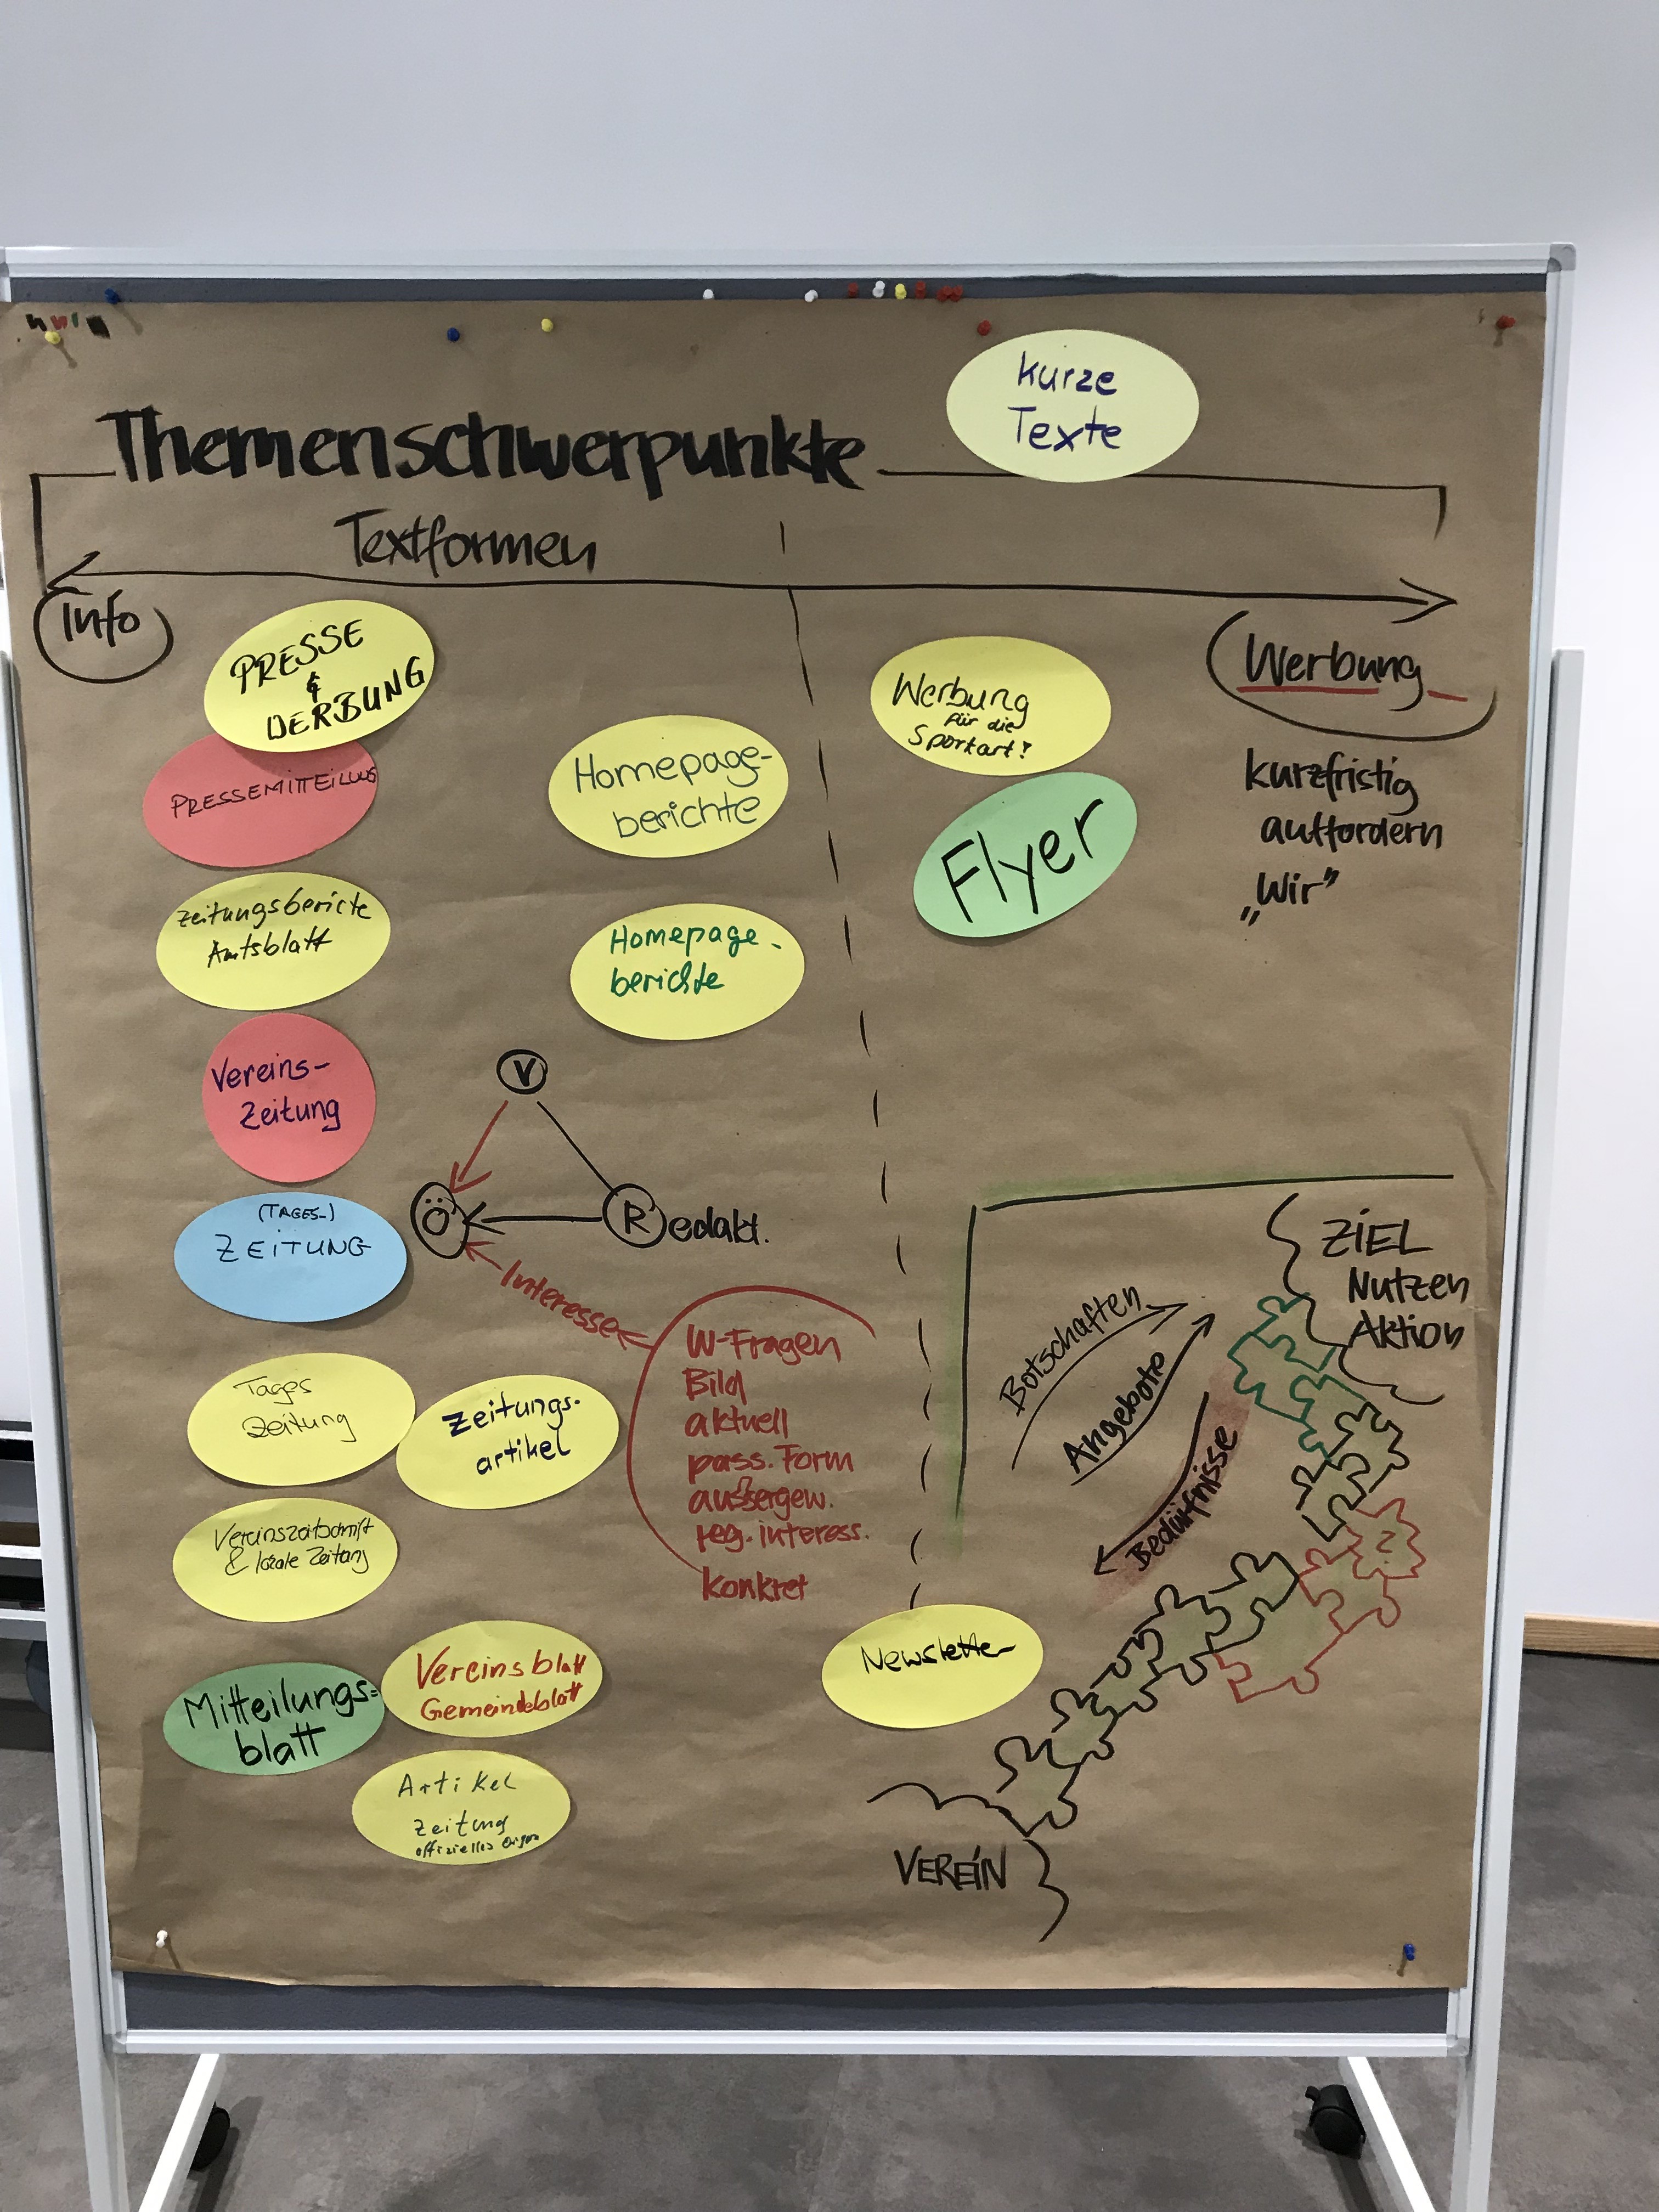 kurze
Texte
Themenschwerpunkte
Textformen
Info
Werbung
kurzfristig
auffordern
„Wir”
PRESSE
&
WERBUNG
PRESSEMITTEILUNG
Zeitungsbericte
Amtsblatt
Vereins-
Zeitung
(TAGES-)
ZEITUNG
Tages
Zeitung
Zeitungs-
artikel
Vereinszeitschrift
& lokale Zeitung
Mitteilungs=
blatt
Vereinsblatt
Gemeindeblatt
Artikel
Zeitung
offizielles Organ
Homepage-
berichte
Homepage-
berichte
V
Ö
Redakt.
Interesse
W-Fragen
Bild
aktuell
pass. Form
aussergew.
reg. interess.
konkret
Werbung
für die
Sportart?
Flyer
Newsletter
ZIEL
Nutzen
Aktion
Botschaften
Angebote
Bedürfnisse
?
VEREIN